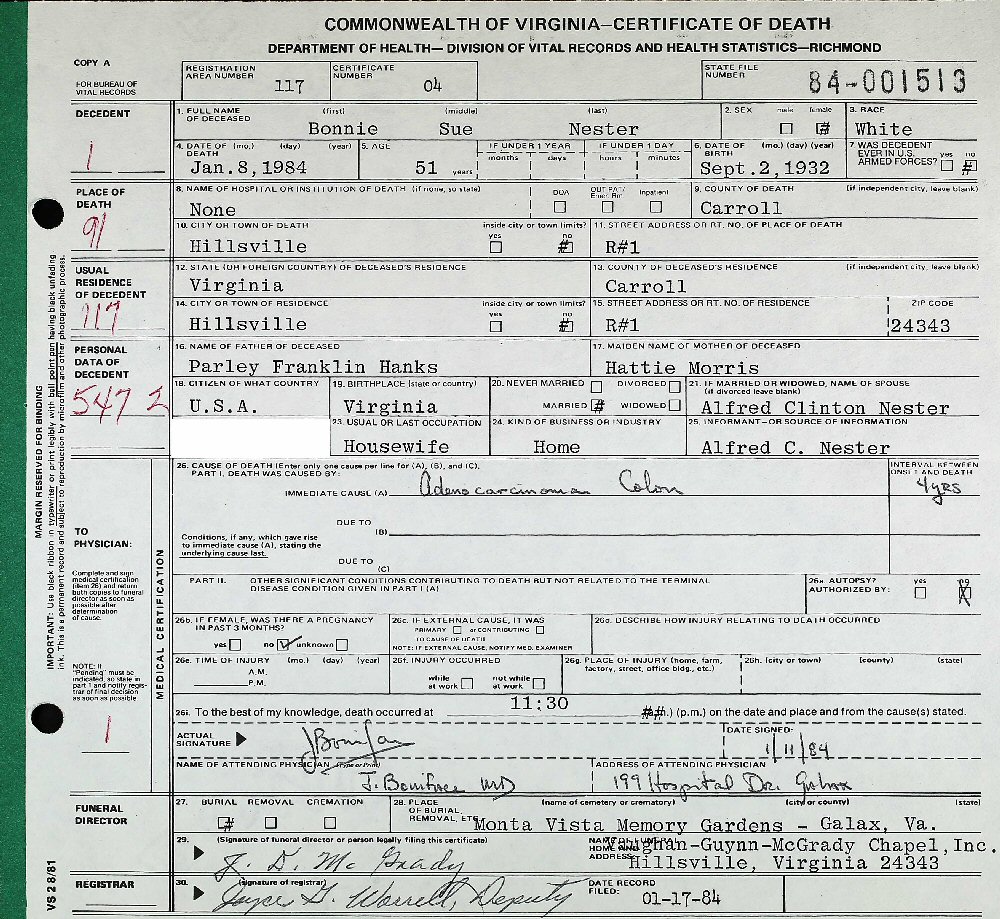 COMMONWEALTH OF VIRGINIA—CERTIFICATE OF DEATH
DEPARTMENT OF HEALTH— DIVISION OF VITAL RECORDS AND HEALTH STATISTICS—RICHMOND
COPY A
FOR BUREAU OF VITAL RECORDS
REGISTRATION AREA NUMBER 117
CERTIFICATE NUMBER 04
STATE FILE NUMBER 84-001513
DECEDENT
1
1. FULL NAME OF DECEASED (first) (middle) (last)
Bonnie Sue Nester
2. SEX male female #
3. RACE White
4. DATE OF DEATH (mo.) (day) (year)
Jan.8,1984
5. AGE 51 years
IF UNDER 1 YEAR months days
IF UNDER 1 DAY hours minutes
6. DATE OF BIRTH (mo.) (day) (year)
Sept.2,1932
7. WAS DECEDENT EVER IN U.S. ARMED FORCES? yes no #
PLACE OF DEATH
91
8. NAME OF HOSPITAL OR INSTITUTION OF DEATH (if none, so state)
None
DOA OUT PAT/ Emer. Rm Inpatient
9. COUNTY OF DEATH (if independent city, leave blank)
Carroll
10. CITY OR TOWN OF DEATH inside city or town limits? yes no #
Hillsville
11. STREET ADDRESS OR RT. NO. OF PLACE OF DEATH
R#1
USUAL RESIDENCE OF DECEDENT
117
12. STATE (OR FOREIGN COUNTRY) OF DECEASED'S RESIDENCE
Virginia
13. COUNTY OF DECEASED'S RESIDENCE (if independent city, leave blank)
Carroll
14. CITY OR TOWN OF RESIDENCE inside city or town limits? yes no #
Hillsville
15. STREET ADDRESS OR RT. NO. OF RESIDENCE ZIP CODE
R#1 24343
PERSONAL DATA OF DECEDENT
547 2
16. NAME OF FATHER OF DECEASED
Parley Franklin Hanks
17. MAIDEN NAME OF MOTHER OF DECEASED
Hattie Morris
18. CITIZEN OF WHAT COUNTRY
U.S.A.
19. BIRTHPLACE (state or country)
Virginia
20. NEVER MARRIED DIVORCED
MARRIED # WIDOWED
21. IF MARRIED OR WIDOWED, NAME OF SPOUSE (if divorced leave blank)
Alfred Clinton Nester
23. USUAL OR LAST OCCUPATION
Housewife
24. KIND OF BUSINESS OR INDUSTRY
Home
25. INFORMANT—OR SOURCE OF INFORMATION
Alfred C. Nester
MARGIN RESERVED FOR BINDING
IMPORTANT: Use black ribbon in typewriter or print legibly with ball point pen having black unfading
ink. This is a permanent record and subject to reproduction by microfilm and other photographic process.
TO PHYSICIAN:
Complete and sign
medical certification
(item 26) and return
both copies to funeral
director as soon as
possible after
determination
of cause.
NOTE: If
"Pending" must be
indicated, so state in
part 1 and notify regis-
trar of final decision
as soon as possible.
1
MEDICAL CERTIFICATION
26. CAUSE OF DEATH (Enter only one cause per line for (A), (B), and (C).
PART I. DEATH WAS CAUSED BY:
INTERVAL BETWEEN ONSET AND DEATH
IMMEDIATE CAUSE (A) Adenocarcinoma Colon 4 yrs
DUE TO (B)
Conditions, if any, which gave rise
to immediate cause (A), stating the
underlying cause last.
DUE TO (C)
PART II. OTHER SIGNIFICANT CONDITIONS CONTRIBUTING TO DEATH BUT NOT RELATED TO THE TERMINAL
DISEASE CONDITION GIVEN IN PART I (A)
26a. AUTOPSY? AUTHORIZED BY: yes no X
26b. IF FEMALE, WAS THERE A PREGNANCY IN PAST 3 MONTHS?
yes no ✓ unknown
26c. IF EXTERNAL CAUSE, IT WAS
PRIMARY or CONTRIBUTING
TO CAUSE OF DEATH
NOTE: IF EXTERNAL CAUSE, NOTIFY MED. EXAMINER
26d. DESCRIBE HOW INJURY RELATING TO DEATH OCCURRED
26e. TIME OF INJURY (mo.) (day) (year)
A.M.
P.M.
26f. INJURY OCCURRED
while at work not while at work
26g. PLACE OF INJURY (home, farm, factory, street, office bldg., etc.)
26h. (city or town) (county) (state)
26i. To the best of my knowledge, death occurred at 11:30 ##.) (p.m.) on the date and place and from the cause(s) stated.
ACTUAL SIGNATURE
DATE SIGNED:
1/11/84
NAME OF ATTENDING PHYSICIAN (Type or Print)
J. Bonifree MD
ADDRESS OF ATTENDING PHYSICIAN
199 Hospital Dr. Galax
FUNERAL DIRECTOR
27. BURIAL # REMOVAL CREMATION
28. PLACE OF BURIAL, REMOVAL, ETC. (name of cemetery or crematory) (city or county) (state)
Monta Vista Memory Gardens - Galax, Va.
29. (Signature of funeral director or person legally filing this certificate)
J. D. McGrady
NAME OF FUNERAL HOME AND ADDRESS
Vaughan-Guynn-McGrady Chapel,Inc.
Hillsville, Virginia 24343
REGISTRAR
30. (signature of registrar)
Joyce G. Worrell, Deputy
DATE RECORD FILED:
01-17-84
VS 2 8/81